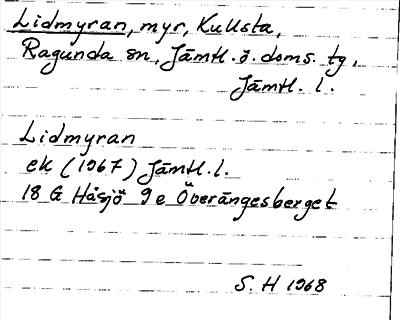 Lidmyran, myr, Kullsta,
Ragunda sn, Jämtl. ö. doms. tg,
Jämtl. l.
Lidmyran
ek (1967) Jämtl. l.
18 G Håsjö 9e Överängesberget
S. H 1968